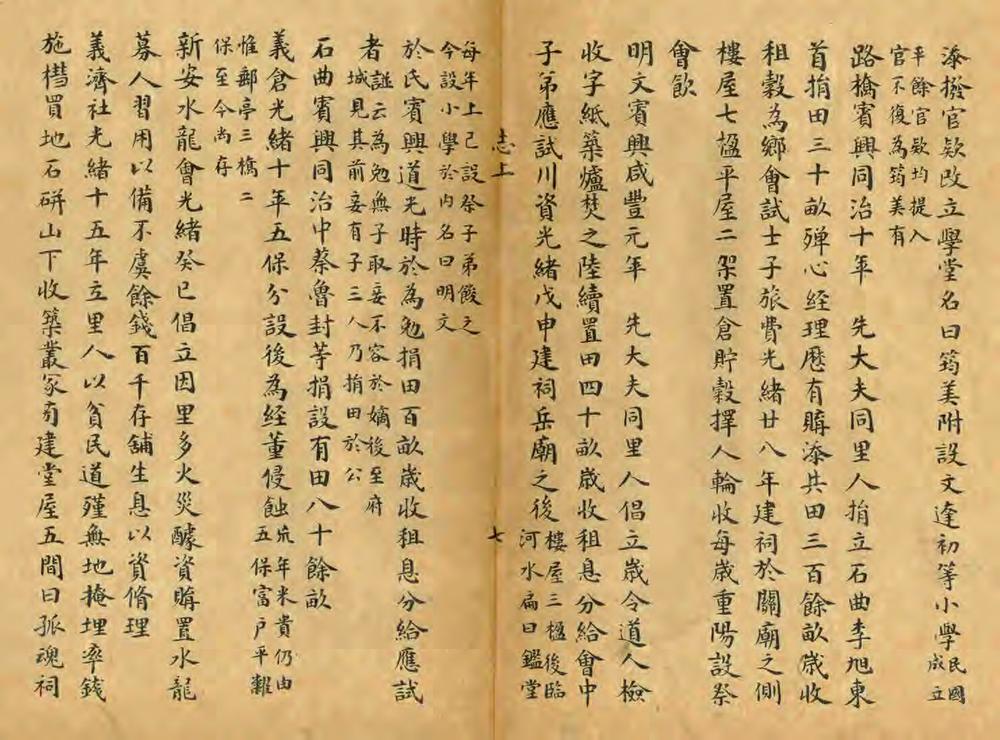 添撥官欵改立學堂名曰筠美附設文逹初等小學民國成立
平餘官欵均提入
官不復為筠美有
路橋賓興同治十年　先大夫同里人捐立石曲李旭東
首捐田三十畝殫心経理歷有購添共田三百餘畝嵗收
租穀為鄉會試士子旅費光緒廿八年建祠於關廟之側
樓屋七楹平屋二架置倉貯穀擇人輪收每嵗重陽設祭
會飲
明文賓興咸豐元年　先大夫同里人倡立嵗令道人檢
收字紙築爐焚之陸續置田四十畝嵗收租息分給會中
子弟應試川資光緒戊申建祠岳廟之後
樓屋三楹後臨
河水扁曰鑑堂
志上
七
每年上已設祭子弟餕之
今設小學於內名曰明文
於氏賓興道光時於為勉捐田百畝嵗收租息分給應試
者
謹云為勉無子取妾不容於嫡後至府
城見其前妾有子三人乃捐田於公
石曲賓興同治中蔡魯封等捐設有田八十餘畝
義倉光緒十年五保分設後為経董侵蝕
荒年米貴仍由
五保富户平糶
惟郵亭三橋二
保至今尚存
新安水龍會光緒癸已倡立因里多火災醵資購置水龍
募人習用以備不虞餘錢百千存舖生息以資脩理
義濟社光緒十五年立里人以貧民道殣無地掩埋率錢
施槥買地石硏山下收築叢冢前建堂屋五間曰孤魂祠